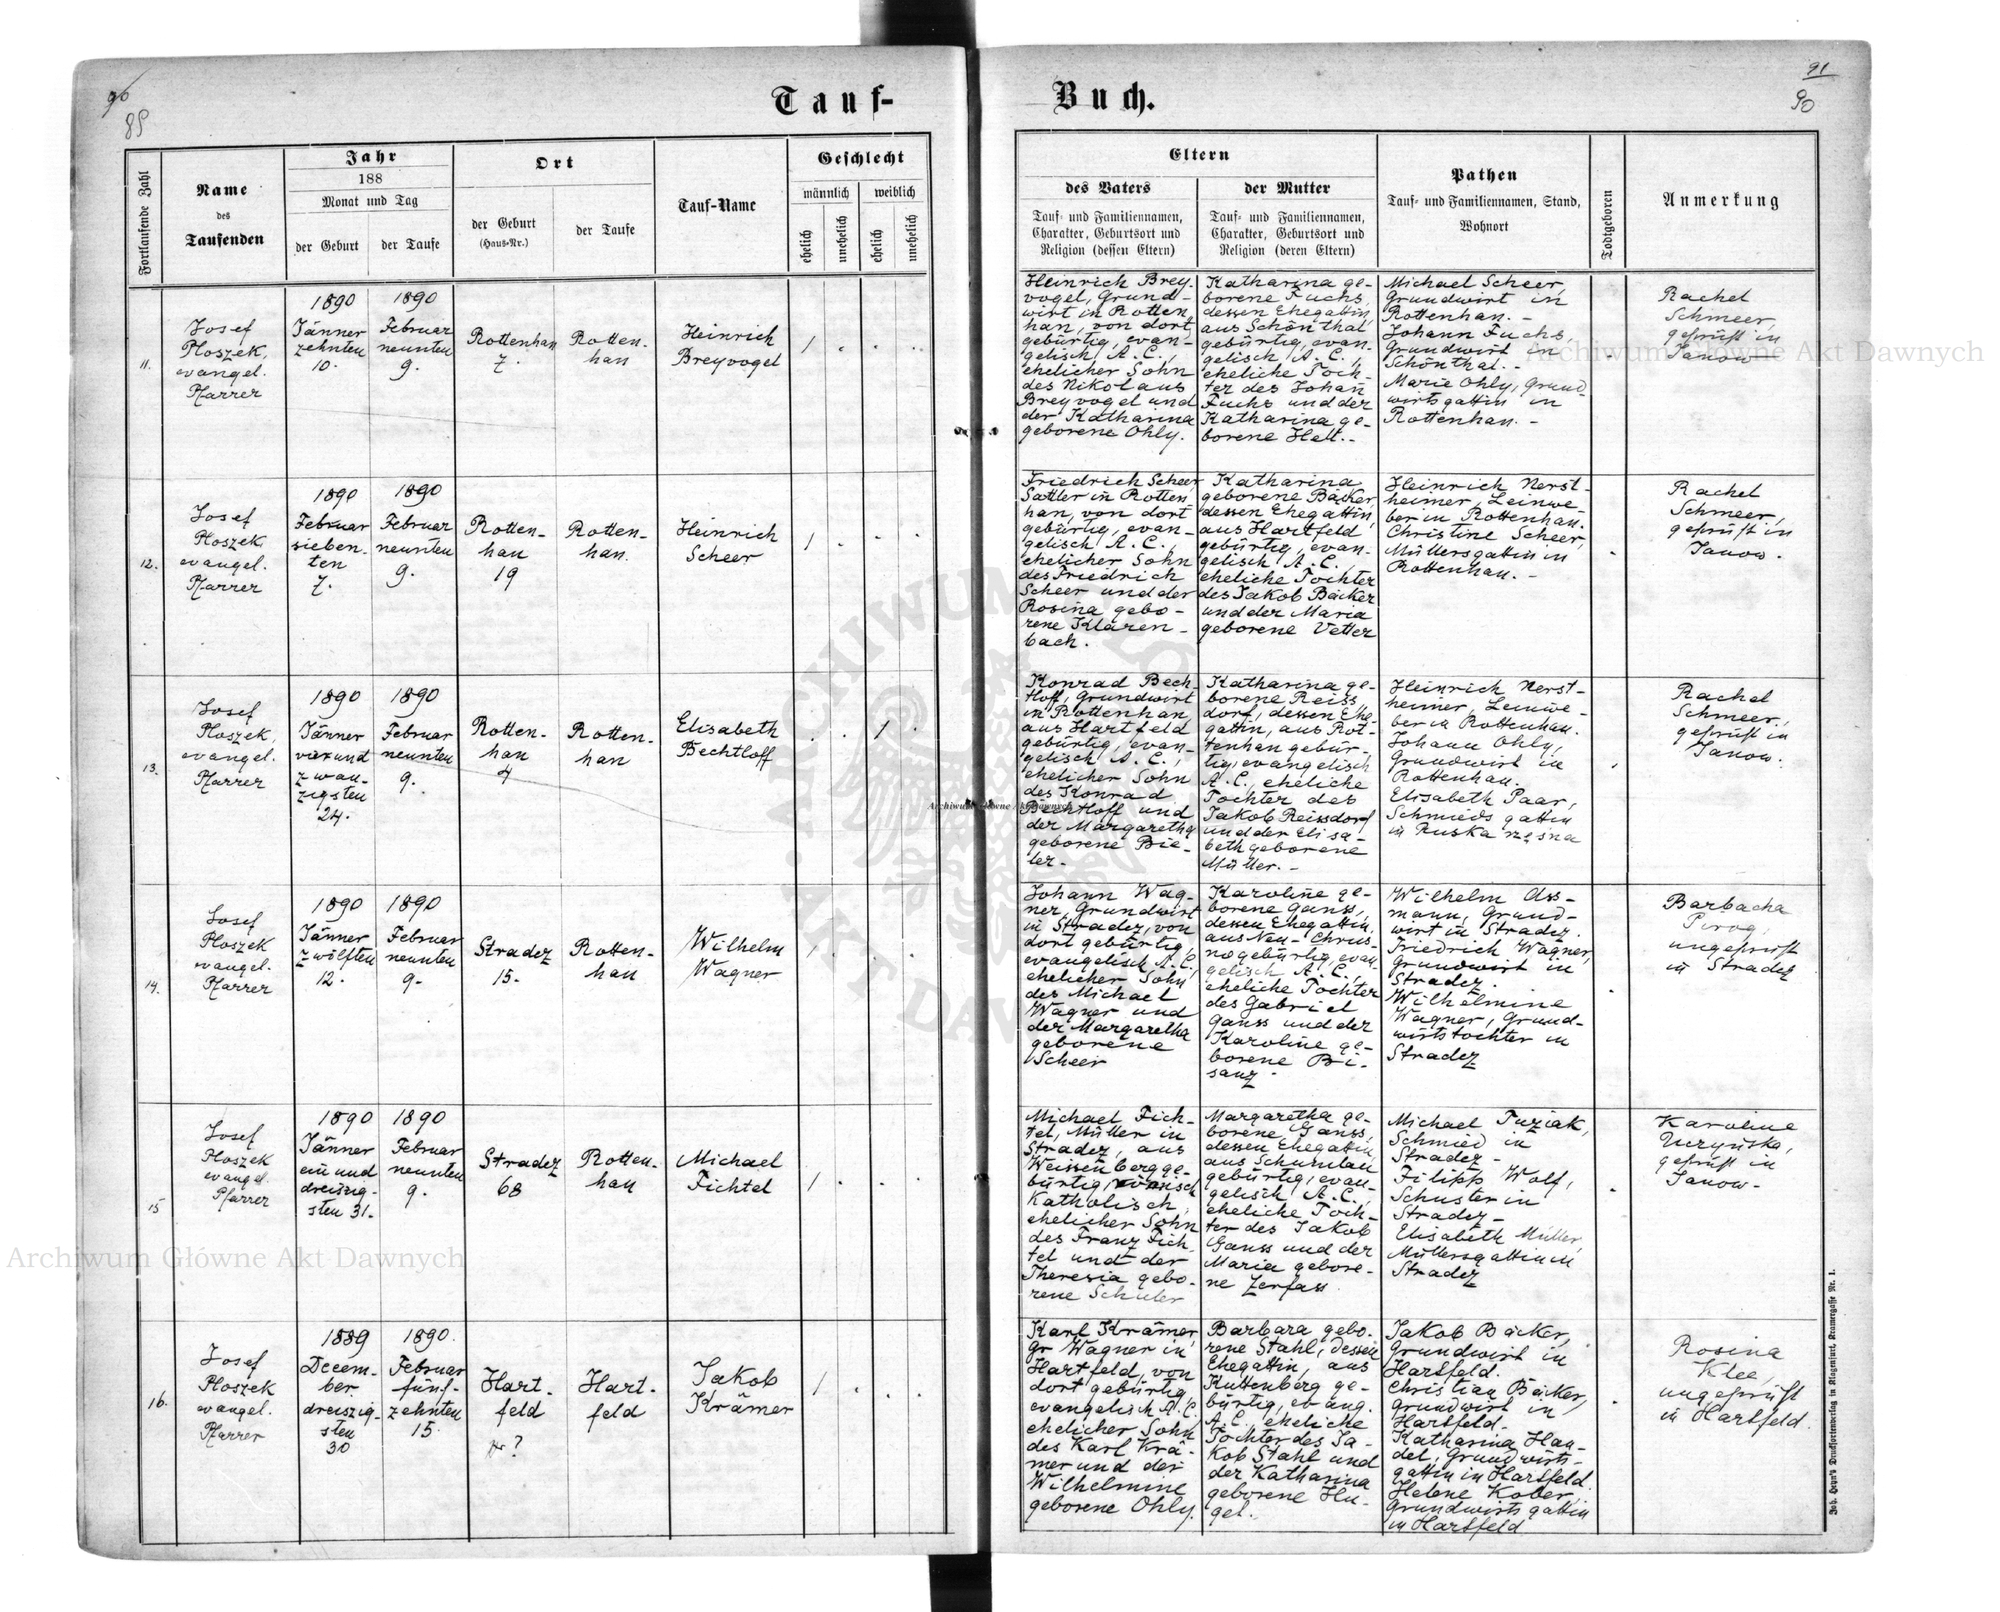 96
89
91
90
Tauf-
Buch.
Fortlaufende Zahl
Name
des
Taufenden
Jahr
188
Monat und Tag
der Geburt
der Taufe
Ort
der Geburt
(Haus-Nr.)
der Taufe
Tauf-Name
Geschlecht
männlich
weiblich
ehelich
unehelich
ehelich
unehelich
Eltern
des Vaters
Tauf- und Familiennamen,
Charakter, Geburtsort und
Religion (dessen Eltern)
der Mutter
Tauf- und Familiennamen,
Charakter, Geburtsort und
Religion (deren Eltern)
Pathen
Tauf- und Familiennamen, Stand,
Wohnort
Todtgeboren
Anmerkung
11.
Josef
Ploszek,
evangel.
Pfarrer
1890
Jänner
zehnten
10.
1890
Februar
neunten
9.
Rottenhan
7.
Rotten-
han
Heinrich
Breyvogel
1
Heinrich Brey-
vogel, Grund-
wirt in Rotten
han, von dort
gebürtig, evan-
gelisch A.C.,
ehelicher Sohn
des Nikolaus
Breyvogel und
der Katharina
geborene Ohly.
Katharina ge-
borene Fuchs,
dessen Ehegattin,
aus Schönthal
gebürtig, evan-
gelisch A.C.,
eheliche Toch-
ter des Johan̄
Fuchs und der
Katharina ge-
borene Hell.-
Michael Scheer,
Grundwirt in
Rottenhan. -
Johann Fuchs,
Grundwirt in
Schönthal. -
Marie Ohly, Grund
wirtsgattin in
Rottenhan. -
Rachel
Schmeer,
geprüft in
Janow
12.
Josef
Ploszek
evangel.
Pfarrer
1890
Februar
sieben-
ten
7.
1890
Februar
neunten
9.
Rotten-
han
19
Rotten-
han.
Heinrich
Scheer
1
Friedrich Scheer
Sattler in Rotten
han, von dort
gebürtig, evan-
gelisch A.C.,
ehelicher Sohn
des Friedrich
Scheer und der
Rosina gebo-
rene Klaren-
bach.
Katharina
geborene Bäcker,
dessen Ehegattin,
aus Hartfeld
gebürtig, evan-
gelisch A.C.,
eheliche Tochter
des Jakob Bäcker
und der Maria
geborene Vetter
Heinrich Nerst-
heimer, Leinwe-
ber in Rottenhan.
Christine Scheer,
Müllersgattin in
Rottenhan. -
Rachel
Schmeer,
geprüft in
Janow.
13.
Josef
Ploszek,
evangel.
Pfarrer
1890
Jänner
vierund
zwan-
zigsten
24.
1890
Februar
neunten
9.
Rotten-
han
4
Rotten-
han
Elisabeth
Bechtloff
1
Konrad Bech
tloff, Grundwirt
in Rottenhan
aus Hartfeld
gebürtig, evan-
gelisch A.C.,
ehelicher Sohn
des Konrad
Bechtloff und
der Margaretha
geborene Bie-
ler.
Katharina ge-
borene Reiss
dorf, dessen Ehe-
gattin, aus Rot-
tenhan gebür-
tig, evangelisch
A.C., eheliche
Tochter des
Jakob Reissdorf
und der Elisa-
beth geborene
Müller. -
Heinrich Nerst-
heimer, Leinwe-
ber in Rottenhan.
Johann Ohly,
Grundwirt in
Rottenhan.
Elisabeth Paar,
Schmieds gattin
in Ruska rzęsna
Rachel
Schmeer,
geprüft in
Janow.
14.
Josef
Ploszek
evangel.
Pfarrer
1890
Jänner
zwölften
12.
1890
Februar
neunten
9.
Stradcz
15.
Rotten-
han
Wilhelm
Wagner
1
Johann Wag-
ner, Grundwirt
in Stradcz, von
dort gebürtig,
evangelisch A.C,
ehelicher Sohn
des Michael
Wagner und
der Margaretha
geborene
Scheer
Karoline ge-
borene Ganss,
dessen Ehegattin,
aus Neu-Chrus-
no gebürtig, evan
gelisch A.C.,
eheliche Tochter
des Gabriel
Ganss und der
Karoline ge-
borene Bi-
sanz.
Wilhelm Ass-
mann, Grund-
wirt in Stradcz.
Friedrich Wagner,
Grundwirt in
Stradcz.
Wilhelmine
Wagner, Grund-
wirtstochter in
Stradcz
Barbacha
Pirog,
ungeprüft
in Stradcz
15
Josef
Ploszek
evangel.
Pfarrer
1890
Jänner
ein und
dreiszig-
sten 31.
1890
Februar
neunten
9.
Stradcz
68
Rotten-
han
Michael
Fichtel
1
Michael Fich-
tel, Müller in
Stradcz, aus
Weissenberg ge-
bürtig, römisch
Katholisch,
ehelicher Sohn
des Franz Fich-
tel und der
Theresia gebo-
rene Schuler
Margaretha ge-
borene Ganss,
dessen Ehegattin,
aus Schumlau
gebürtig, evan-
gelisch A.C.,
eheliche Toch-
ter des Jakob
Ganss und der
Maria gebore-
ne Zerfass
Michael Tuziak,
Schmied in
Stradcz -
Filipp Wolf,
Schuster in
Stradcz -
Elisabeth Müller,
Müllersgattin in
Stradcz
Karoline
geprüft in
Janow.
16.
Josef
Ploszek
evangel.
Pfarrer
1889
Decem-
ber
dreiszig-
sten
30
1890.
Februar
fünf-
zehnten
15.
Hart-
feld
Nr ?
Hart-
feld
Jakob
Krämer
1
Karl Krämer,
gr Wagner in
Hartfeld, von
dort gebürtig,
evangelisch A.C
ehelicher Sohn
des Karl Krä-
mer und der
Wilhelmine
geborene Ohly.
Barbara gebo-
rene Stahl, dessen
Ehegattin, aus
Kuttenberg ge-
bürtig, evang.
A.C., eheliche
Tochter des Ja-
kob Stahl und
der Katharina
geborene Hu-
gel.
Jakob Bäcker,
Grundwirt in
Hartfeld.
Christian Bäcker,
Grundwirt in
Hartfeld.
Katharina Han-
del, Grundwirts-
gattin in Hartfeld.
Helene Kober,
Grundwirtsgattin
in Hartfeld
Rosina
Klee,
ungeprüft
in Hartfeld.
Joh. Heyn's Drucksortenverlag in Klagenfurt, Kramergasse Nr. 1.
Archiwum Główne Akt Dawnych
Archiwum Główne Akt Dawnych
Archiwum Główne Akt Dawnych
ARCHIWUM
AKT DAWNYCH